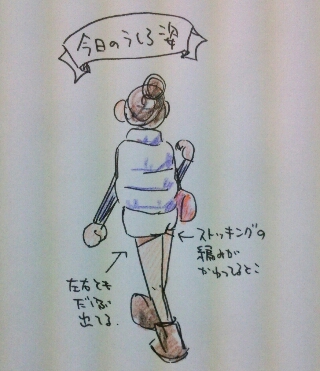 今日のうしろ姿
ストッキングの
編みが
かわってるとこ
左右とも
だいぶ
出てる.